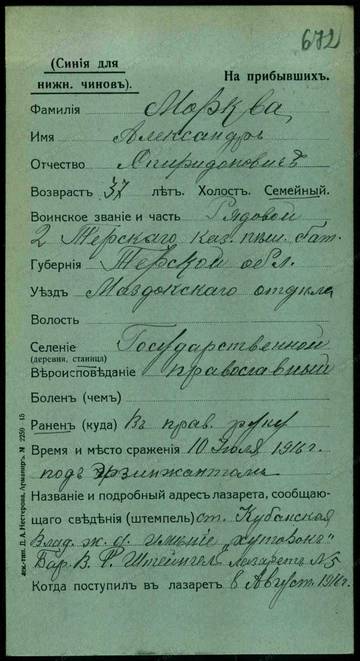 672
(Синія для
нижн. чиновъ).
На прибывшихъ.
Фамилія Морква
Имя Александръ
Отчество Спиридоновичъ
Возврастъ 37 лѣтъ. Холостъ. Семейный.
Воинское званіе и часть Рядовой
2 Терскаго каз. пѣш. бат.
Губернія Терской обл.
Уѣздъ Маздокскаго отдѣла
Волость
Селеніе Государственной
(деревня, станица)
Вѣроисповѣданіе православный
Боленъ (чемъ)
Раненъ (куда) Въ прав. руку
Время и мѣсто сраженія 10 Іюля 1916 г.
подъ Эрзинжантомъ
Названіе и подробный адресъ лазарета, сообщаю-
щаго свѣдѣнія (штемпель) ст. Кубанская
Влад. ж. д. имѣніе „хуторокъ"
Бар. В. Р. Штейнгель лазаретъ №5
Когда поступилъ въ лазаретъ 8 Август. 1916 г.
лок.-тип. Д. А. Нестерова, Армавиръ. № 2259—15